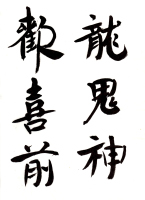 龍鬼神
歡喜前